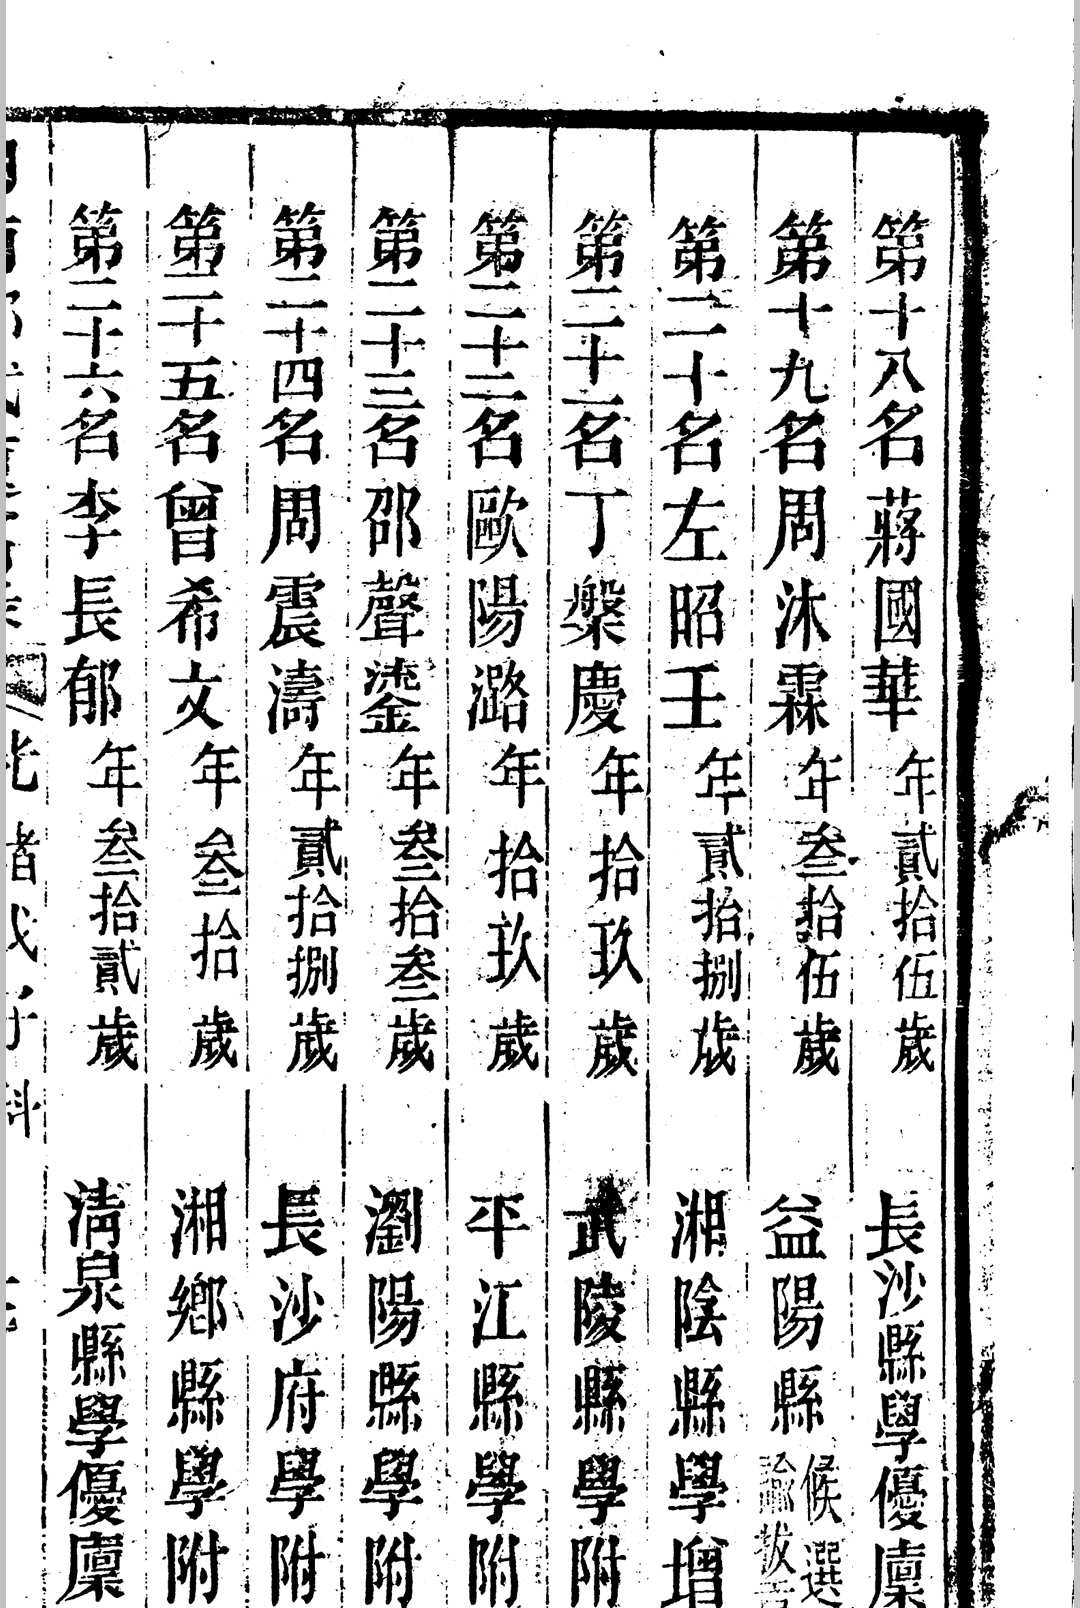 第十八名蔣國華年貳拾伍歲 長沙縣學優廩
第十九名周沐霖年叁拾伍歲 益陽縣候選諭拔
第二十名左昭壬年貳拾捌歲 湘陰縣學增
第二十一名丁槃慶年拾玖歲 武陵縣學附
第二十二名歐陽潞年拾玖歲 平江縣學附
第二十三名邵聲鎏年叁拾叁歲 瀏陽縣學附
第二十四名周震濤年貳拾捌歲 長沙府學附
第二十五名曾希文年叁拾歲 湘鄉縣學附
第二十六名李長郁年叁拾貳歲 清泉縣學優廩
光緒戊子科